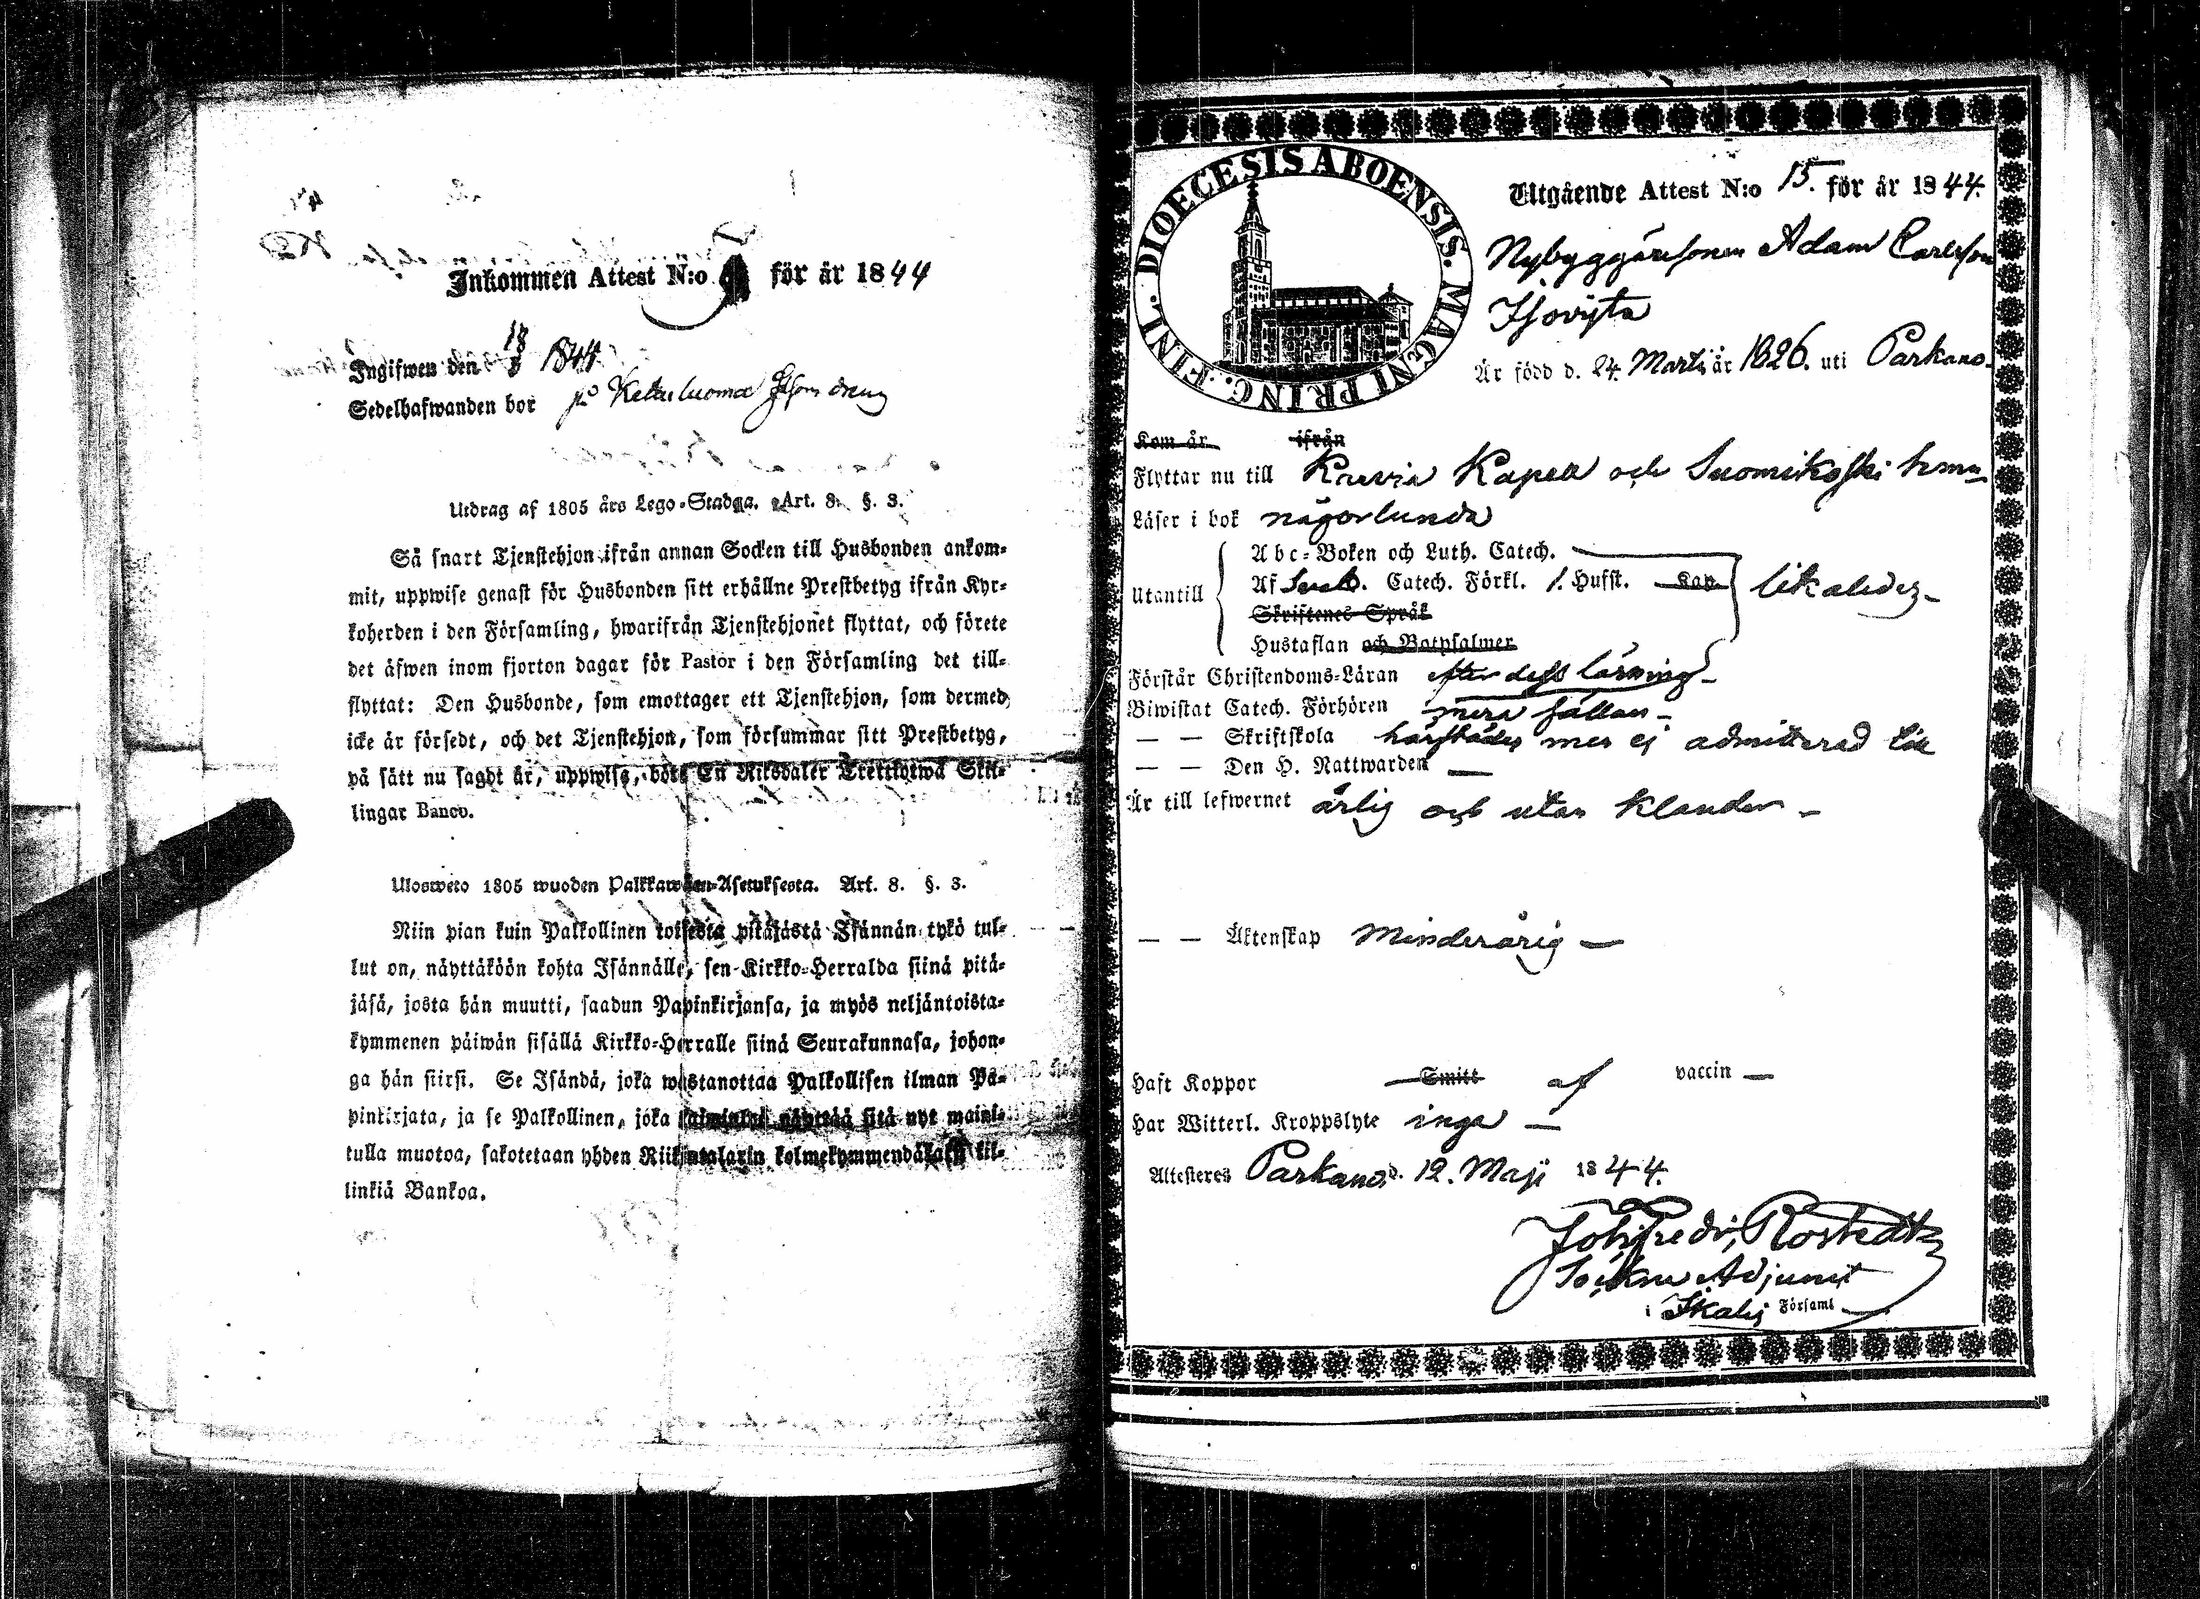 Inkommen Attest N:o för år 1844
Ingifwen den 18 1844
Sedelhafwanden bor på Ketu luoma såsom dreng
Utdrag af 1805 års Lego-Stadga. Art. 8. §. 3.
Så snart Tjenstehjon ifrån annan Socken till Husbonden ankom-
mit, uppwise genast för Husbonden sitt erhållne Prestbetyg ifrån Kyr-
koherden i den Församling, hwarifrån Tjenstehjonet flyttat, och förete
det äfwen inom fjorton dagar för Pastor i den Församling det till-
flyttat: Den Husbonde, som emottager ett Tjenstehjon, som dermed
icke är försedt, och det Tjenstehjon, som försummar sitt Prestbetyg,
på sätt nu sagdt är, uppwisa, böte En Riksdaler Trettiotwå Skil-
lingar Banco.
Ulosweto 1805 wuoden Palkkawäen-Asetuksesta. Art. 8. §. 3.
Niin pian kuin Palkollinen toisesta pitäjästä Isännän tykö tul-
lut on, näyttäköön kohta Isännälle, sen Kirkko-Herralda siinä pitä-
jäsä, josta hän muutti, saadun Papinkirjansa, ja myös neljäntoista-
kymmenen päiwän sisällä Kirkko-Herralle siinä Seurakunnasa, johon-
ga hän siirsi. Se Isändä, joka wastanottaa Palkollisen ilman Pa-
pinkirjata, ja se Palkollinen, joka laiminlyö näyttää sitä nyt maini-
tulla muotoa, sakotetaan yhden Riikintalarin kolmekymmendäkaksi kil-
linkiä Bankoa.
DIOECESIS ABOENSIS. MAGNI PRINC. FINL.
Utgående Attest N:o 15. för år 1844.
Nybyggaresonen Adam Carlsson
Är född d. 24. Martii år 1826. uti Parkano.
Kom år ifrån
Flyttar nu till Karvia Kapell och Suomikoski hemn
Läser i bok någorlunda
Utantill
Abc-Boken och Luth. Catech.
Af Sveb. Catech. Förkl. 1. Hufst. Kap likaledes
Skriftenes Språk
Hustaflan och Botpsalmer
Förstår Christendoms-Läran efter dess läsning
Biwistat Catech. Förhören mera sällan
— — Skriftskola härstädes men ej admitterad till
— — Den H. Nattwarden —
Är till lefwernet ärlig och utan klander —
— — Äktenskap Minderårig —
Haft Koppor Smitt af vaccin —
Har Witterl. Kroppslyte inga —
Attesteres Parkano d. 12. Maji 1844.
Joh. Fredr. Rostedt
Sockne Adjunct
i Ikalis Församl